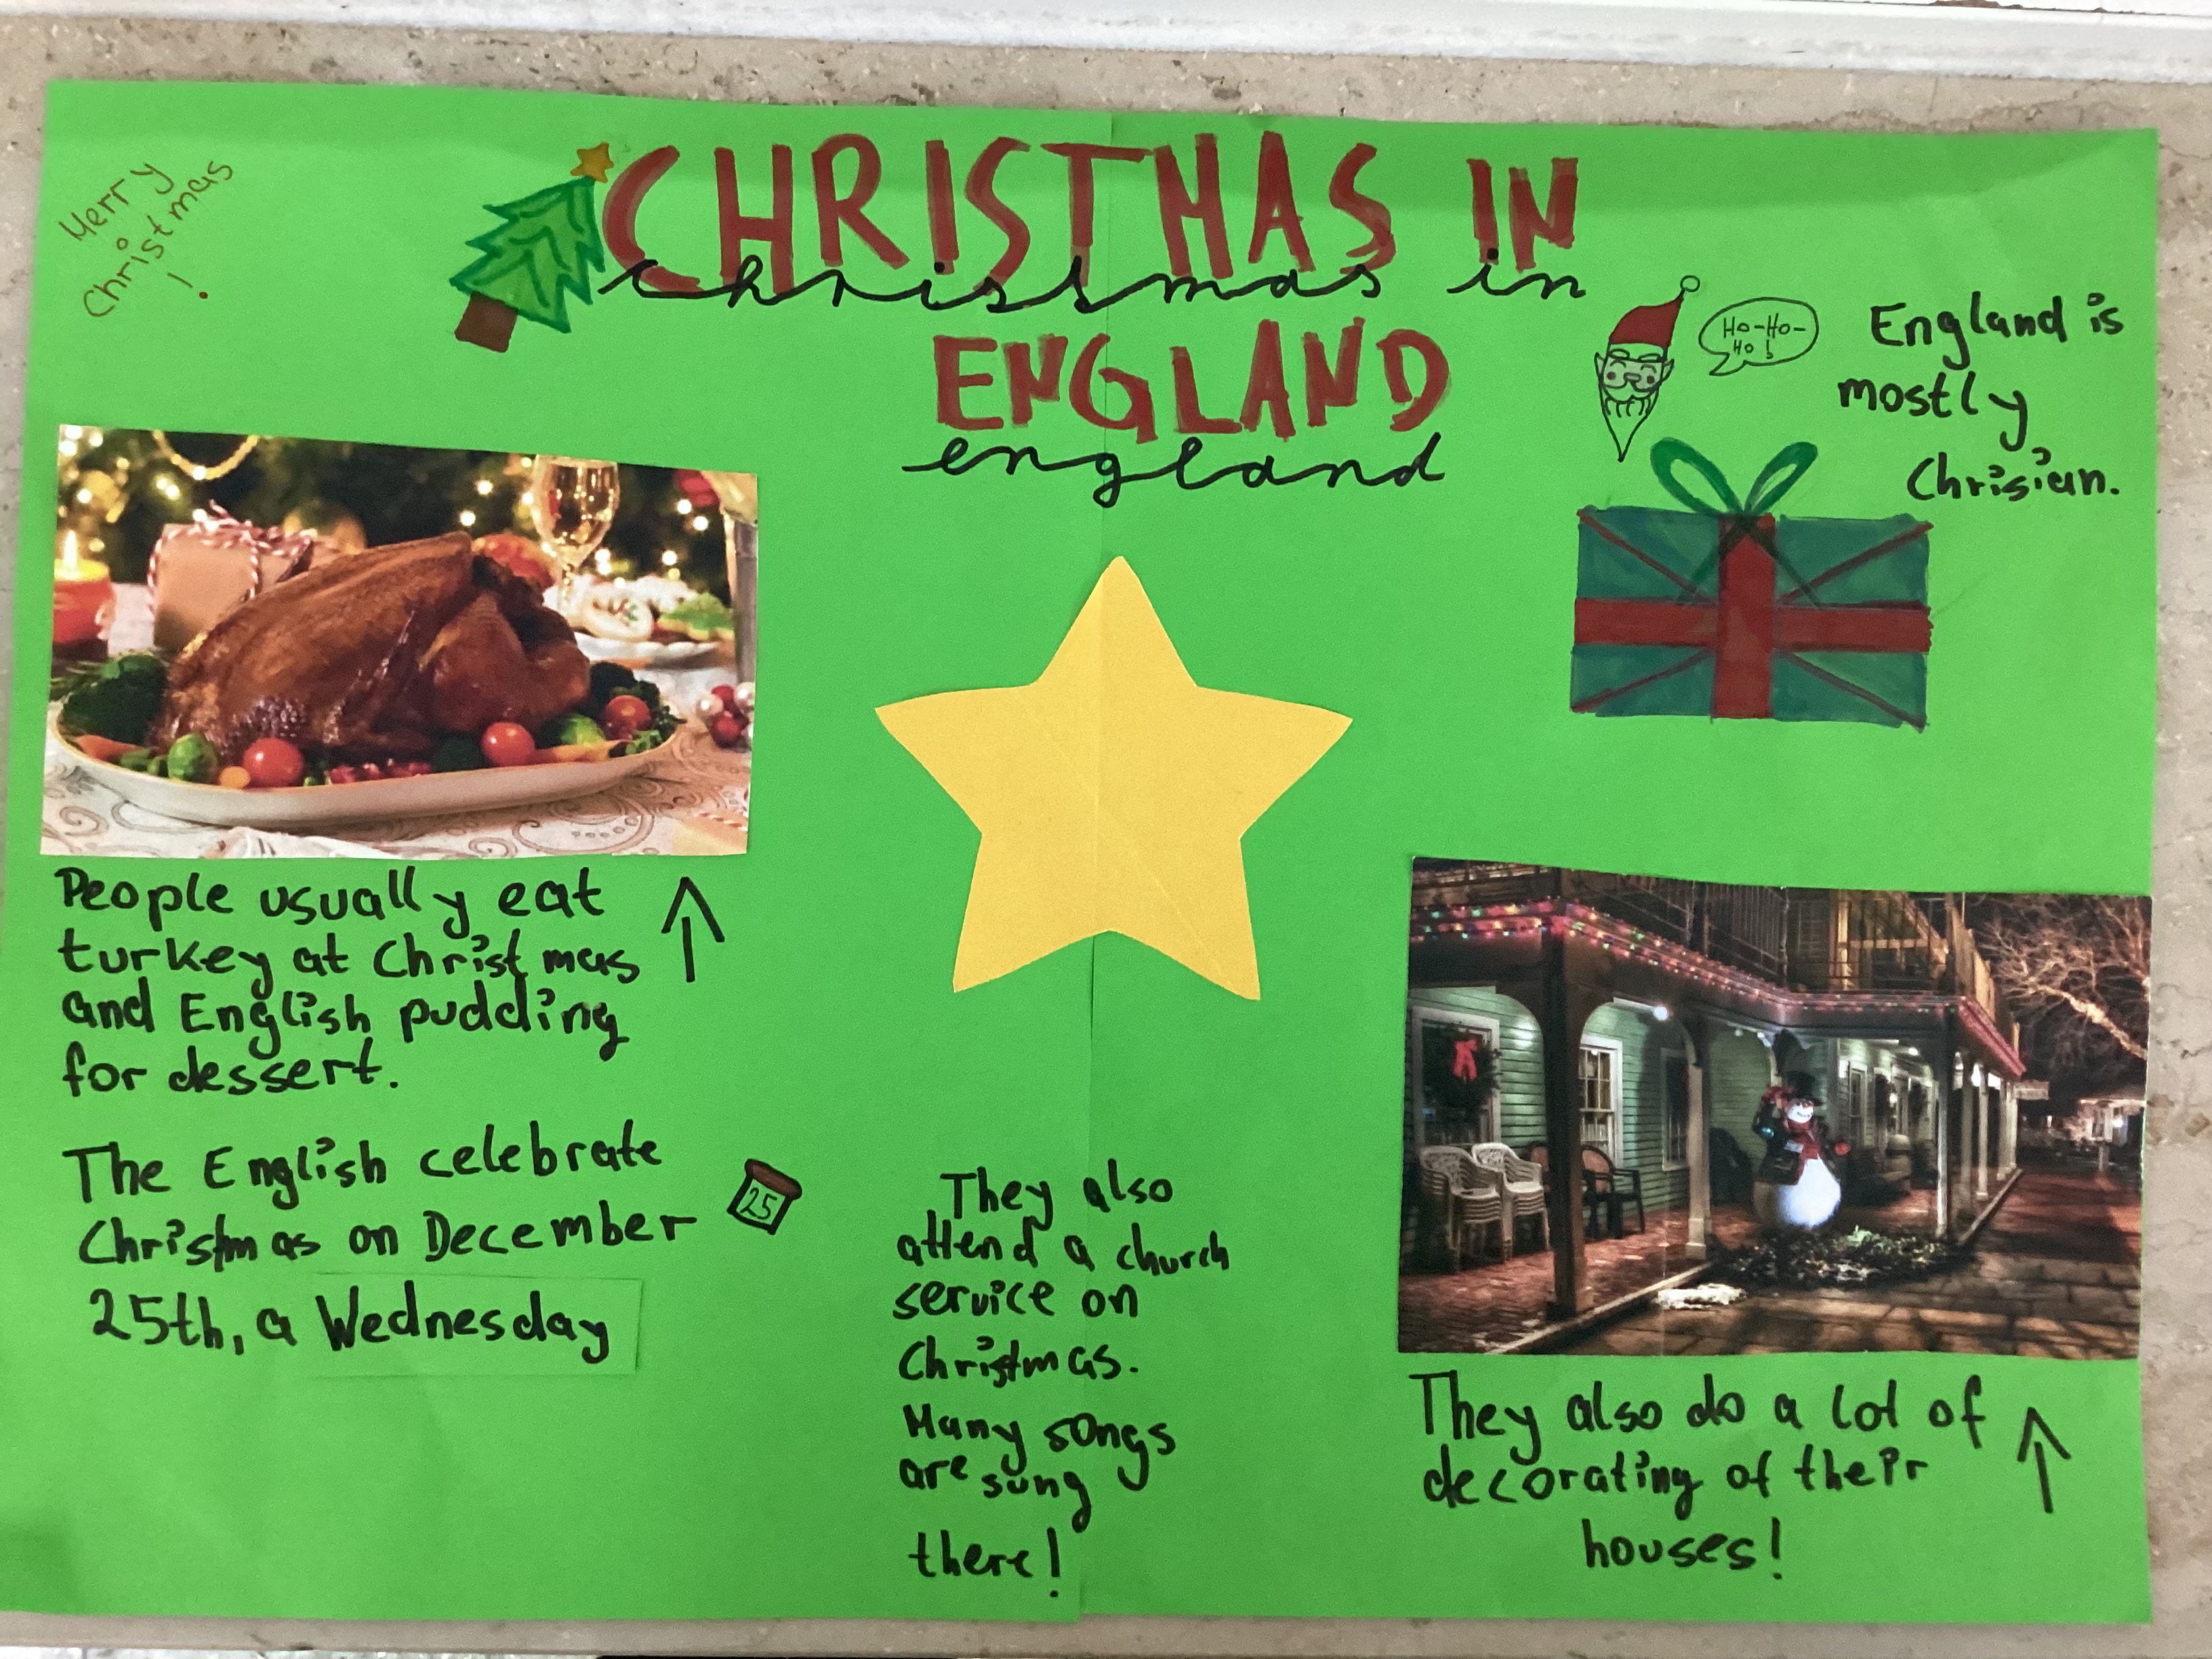 Merry
Christmas
!
CHRISTMAS IN
christmas in
ENGLAND
england
Ho-Ho-
Ho!
England is
mostly
Chrisian.
People usually eat
turkey at Christmas
and English pudding
for dessert.
The English celebrate
Christmas on December
25th, a Wednesday
25
They also
attend a church
service on
Christmas.
Many songs
are sung
there!
They also do a lot of
decorating of their
houses!